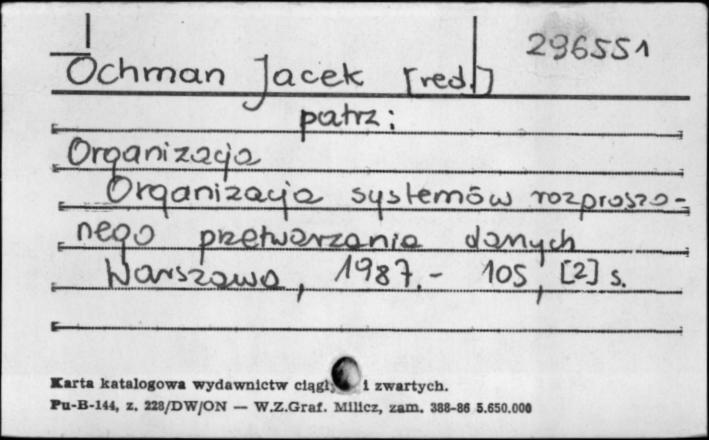 296551
Ochman Jacek [red.]
patrz:
Organizacja
Organizacja systemów rozproszo-
nego przetwarzania danych
Warszawa, 1987.- 105, [2] s.
Karta katalogowa wydawnictw ciągł i zwartych.
Pu-B-144, z. 228/DW/ON — W.Z.Graf. Milicz, zam. 388-86 5.650.000